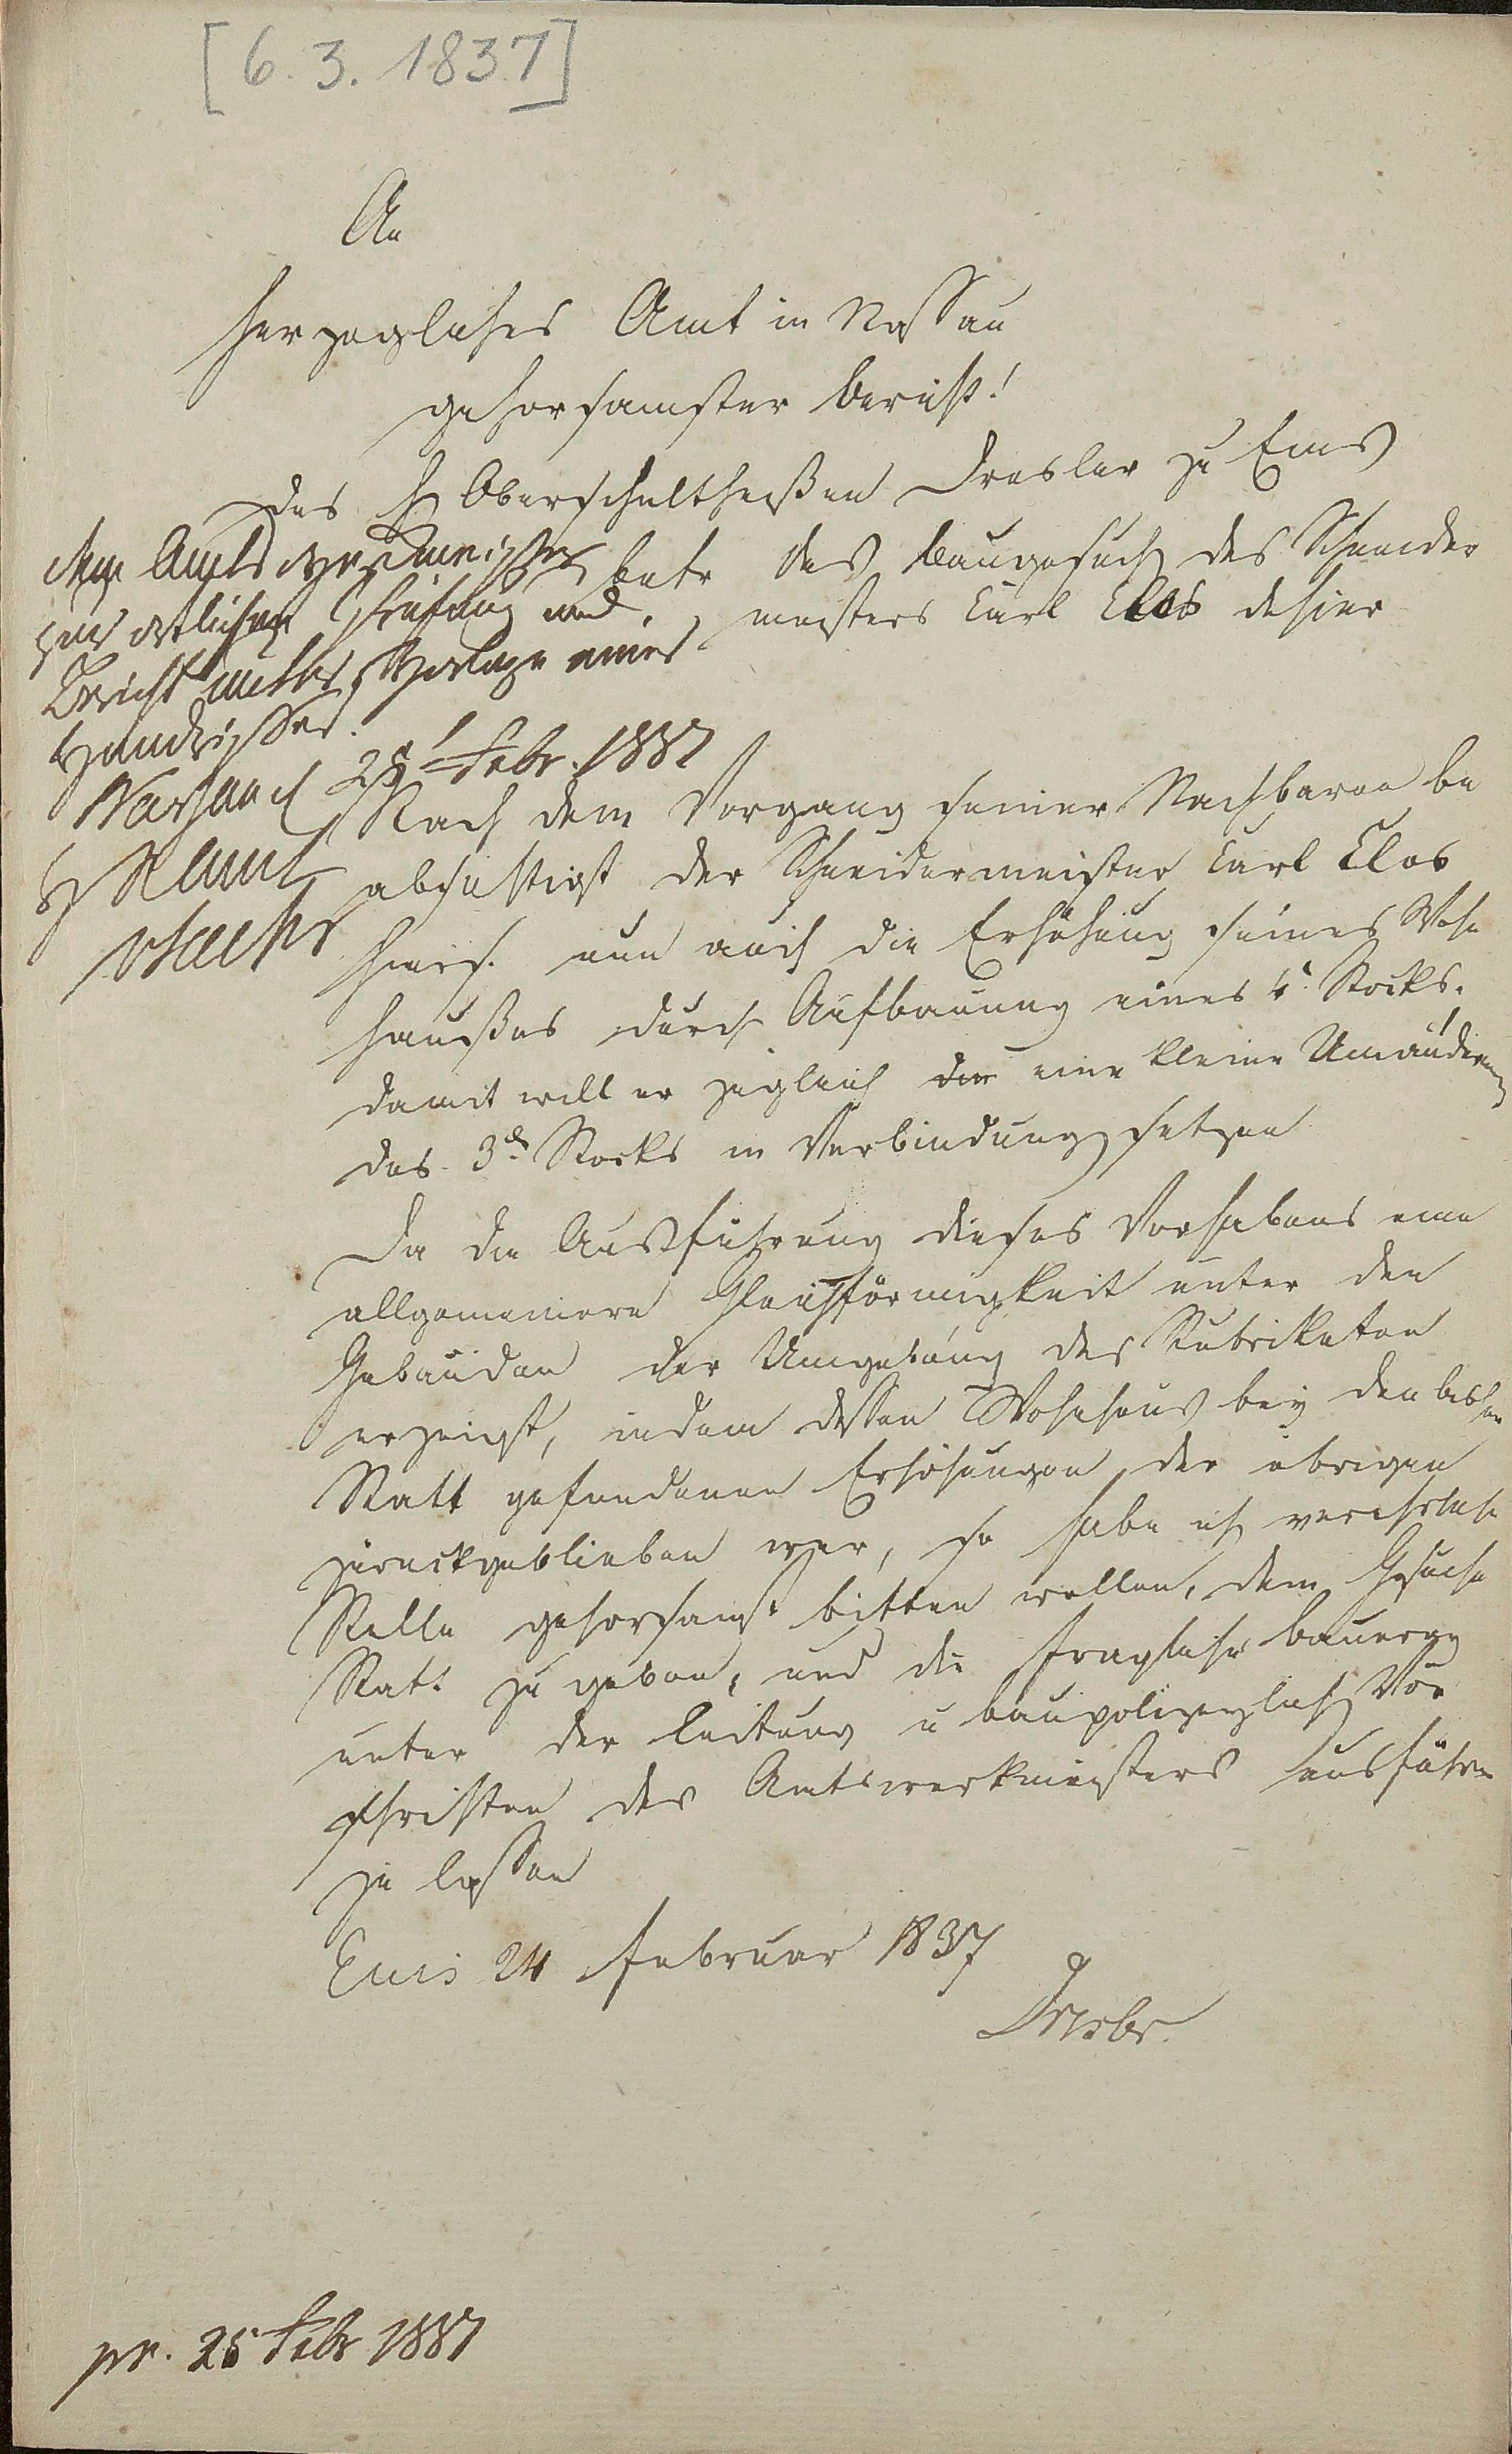 [6. 3. 1837]
An
Herzogliches Amt in Nassau
gehorsamster Bericht!
des H Oberschultheißen Dresler zu Ems
betr das Baugesuch des Schneider
meisters Carl Clos dahier
dem Amtswerkmeister
zur örtlichen Prüfung und
Bericht unter Vorlage eines
Handrisses.
Nassau 25 Febr. 1837
H N Amt
Nach dem Vorgang seiner Nachbaren be
absichtigt der Schneidermeister Carl Clos
hies. nun auch die Erhöhung seines Wohn
haußes durch Aufbauung eines 4t Stocks,
damit will er zugleich die eine kleine Umänderung
des 3t Stocks in Verbindung setzen
Da die Ausführung dieses Vorhabens eine
allgemeinere Gleichförmigkeit unter den
Gebäuden der Umgebung des Rubrikaten
erzeugt, indem dessen Wohnhaus bey den bisher
Statt gefundenen Erhöhungen der übrigen
zurückgeblieben war, so habe ich verehrliche
Stelle gehorsamst bitten wollen, dem Gesuche
Statt zu geben, und die fragliche Bauerey
unter der Leitung u baupolizeylich Vor
schriften des Amtswerkmeisters ausführen
zu lassen
Ems 24 Februar 1837
Dresler.
pr. 25 Febr 1837